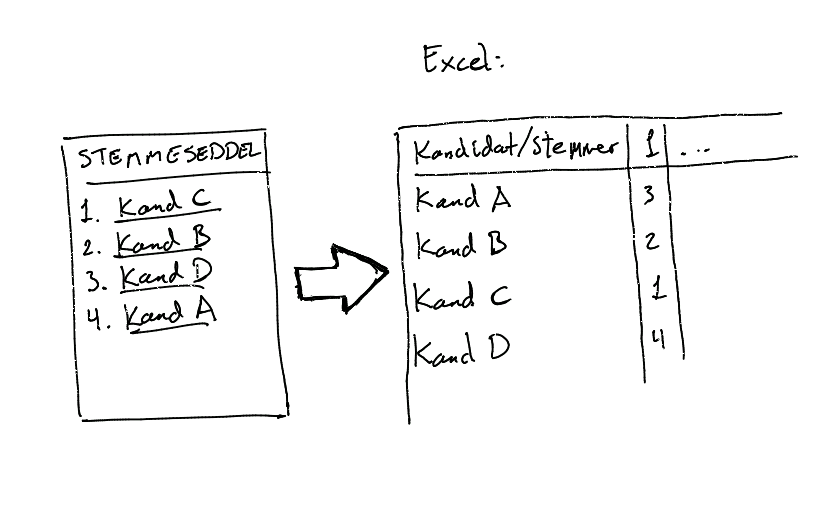 Excel:
STEMMESEDDEL
1. Kand C
2. Kand B
3. Kand D
4. Kand A
Kandidat/Stemmer 1 ...
Kand A 3
Kand B 2
Kand C 1
Kand D 4